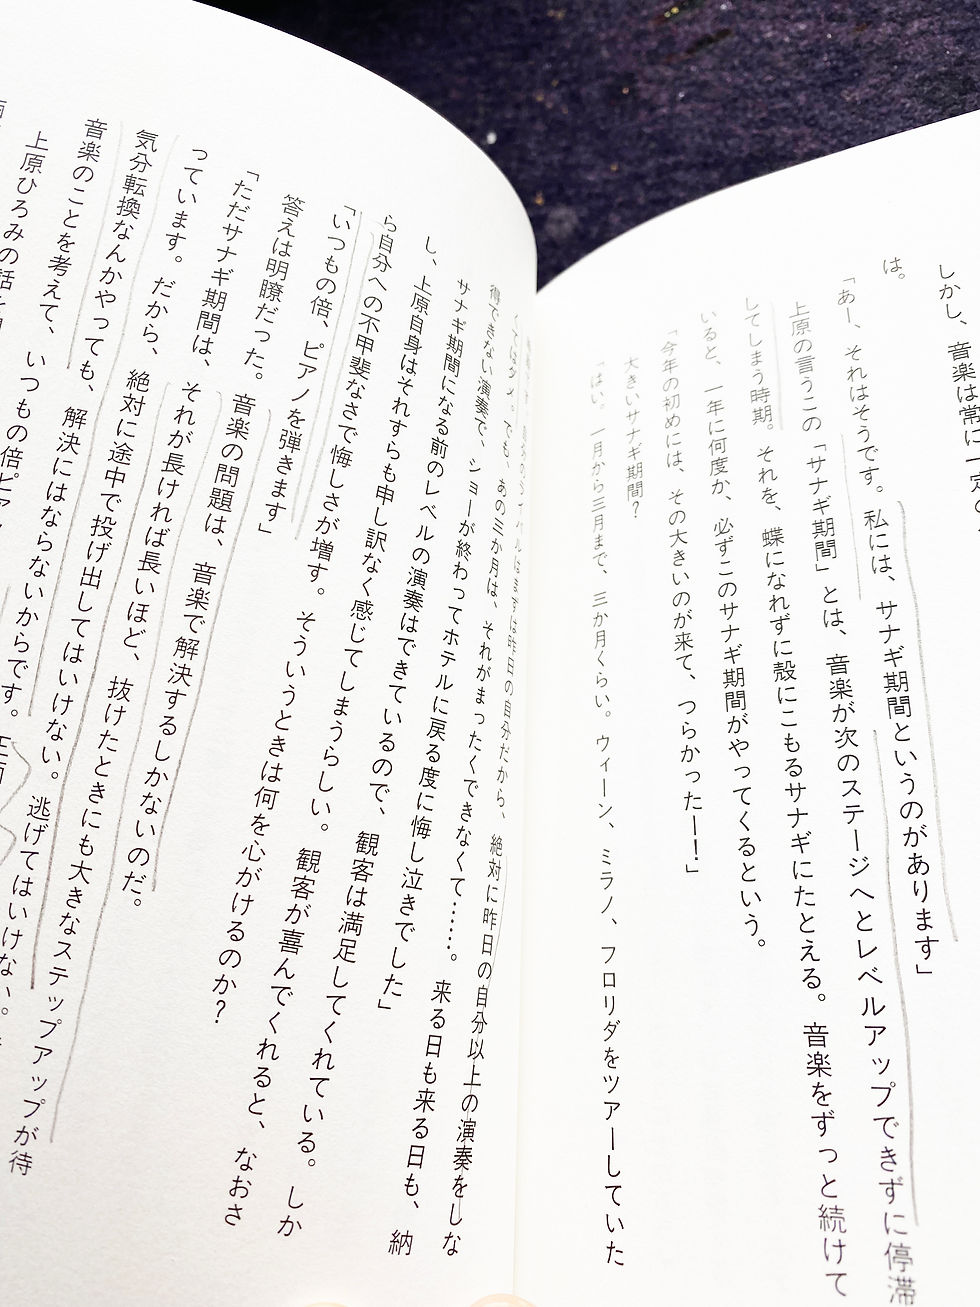 しかし、音楽は常に一定
は。
「あー、それはそうです。私には、サナギ期間というのがあります」
上原の言うこの「サナギ期間」とは、音楽が次のステージへとレベルアップできずに停滞
してしまう時期。それを、蝶になれずに殻にこもるサナギにたとえる。音楽をずっと続けて
いると、一年に何度か、必ずこのサナギ期間がやってくるという。
「今年の初めには、その大きいのが来て、つらかったー！」
大きいサナギ期間？
「はい。一月から三月まで、三か月くらい。ウィーン、ミラノ、フロリダをツアーしていた
昨日の自分だから、絶対に昨日の自分以上の演奏をしな
くてはダメ。でも、あの三か月は、それがまったくできなくて……。来る日も来る日も、納
得できない演奏で、ショーが終わってホテルに戻る度に悔し泣きでした」
サナギ期間になる前のレベルの演奏はできているので、観客は満足してくれている。しか
し、上原自身はそれすらも申し訳なく感じてしまうらしい。観客が喜んでくれると、なおさ
ら自分への不甲斐なさで悔しさが増す。そういうときは何を心がけるのか？
「いつもの倍、ピアノを弾きます」
答えは明瞭だった。音楽の問題は、音楽で解決するしかないのだ。
「ただサナギ期間は、それが長ければ長いほど、抜けたときにも大きなステップアップが待
っています。だから、絶対に途中で投げ出してはいけない。逃げてはいけない。
気分転換なんかやっても、解決にはならないからです。
音楽のことを考えて、いつもの倍ピアノ
上原ひろみの話を